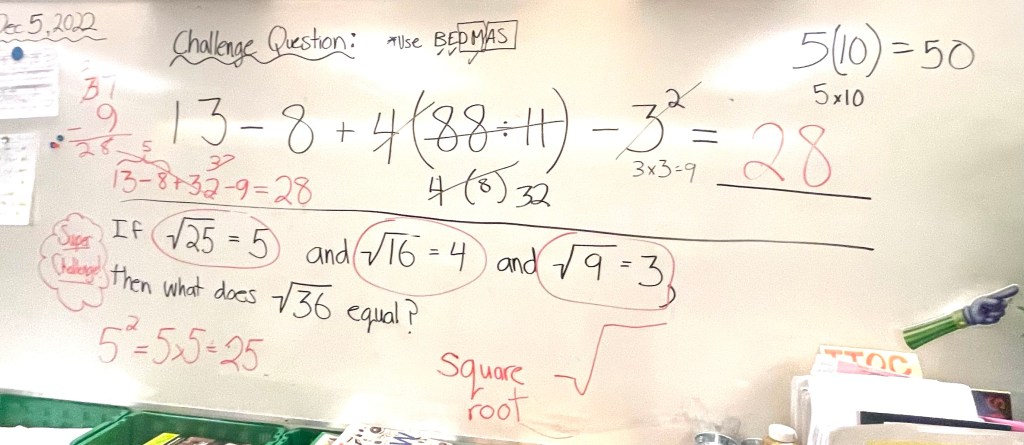 Dec 5, 2022
Challenge Question: *Use BEDMAS
5(10) = 50
5 x 10
37
- 9
28
13 - 8 + 4(88 ÷ 11) - 3² = 28
5
37
13 - 8 + 32 - 9 = 28
4 (8) 32
3 x 3 = 9
Super Challenge!
If √25 = 5 and √16 = 4 and √9 = 3,
then what does √36 equal?
5² = 5 x 5 = 25
square root √
TTOC